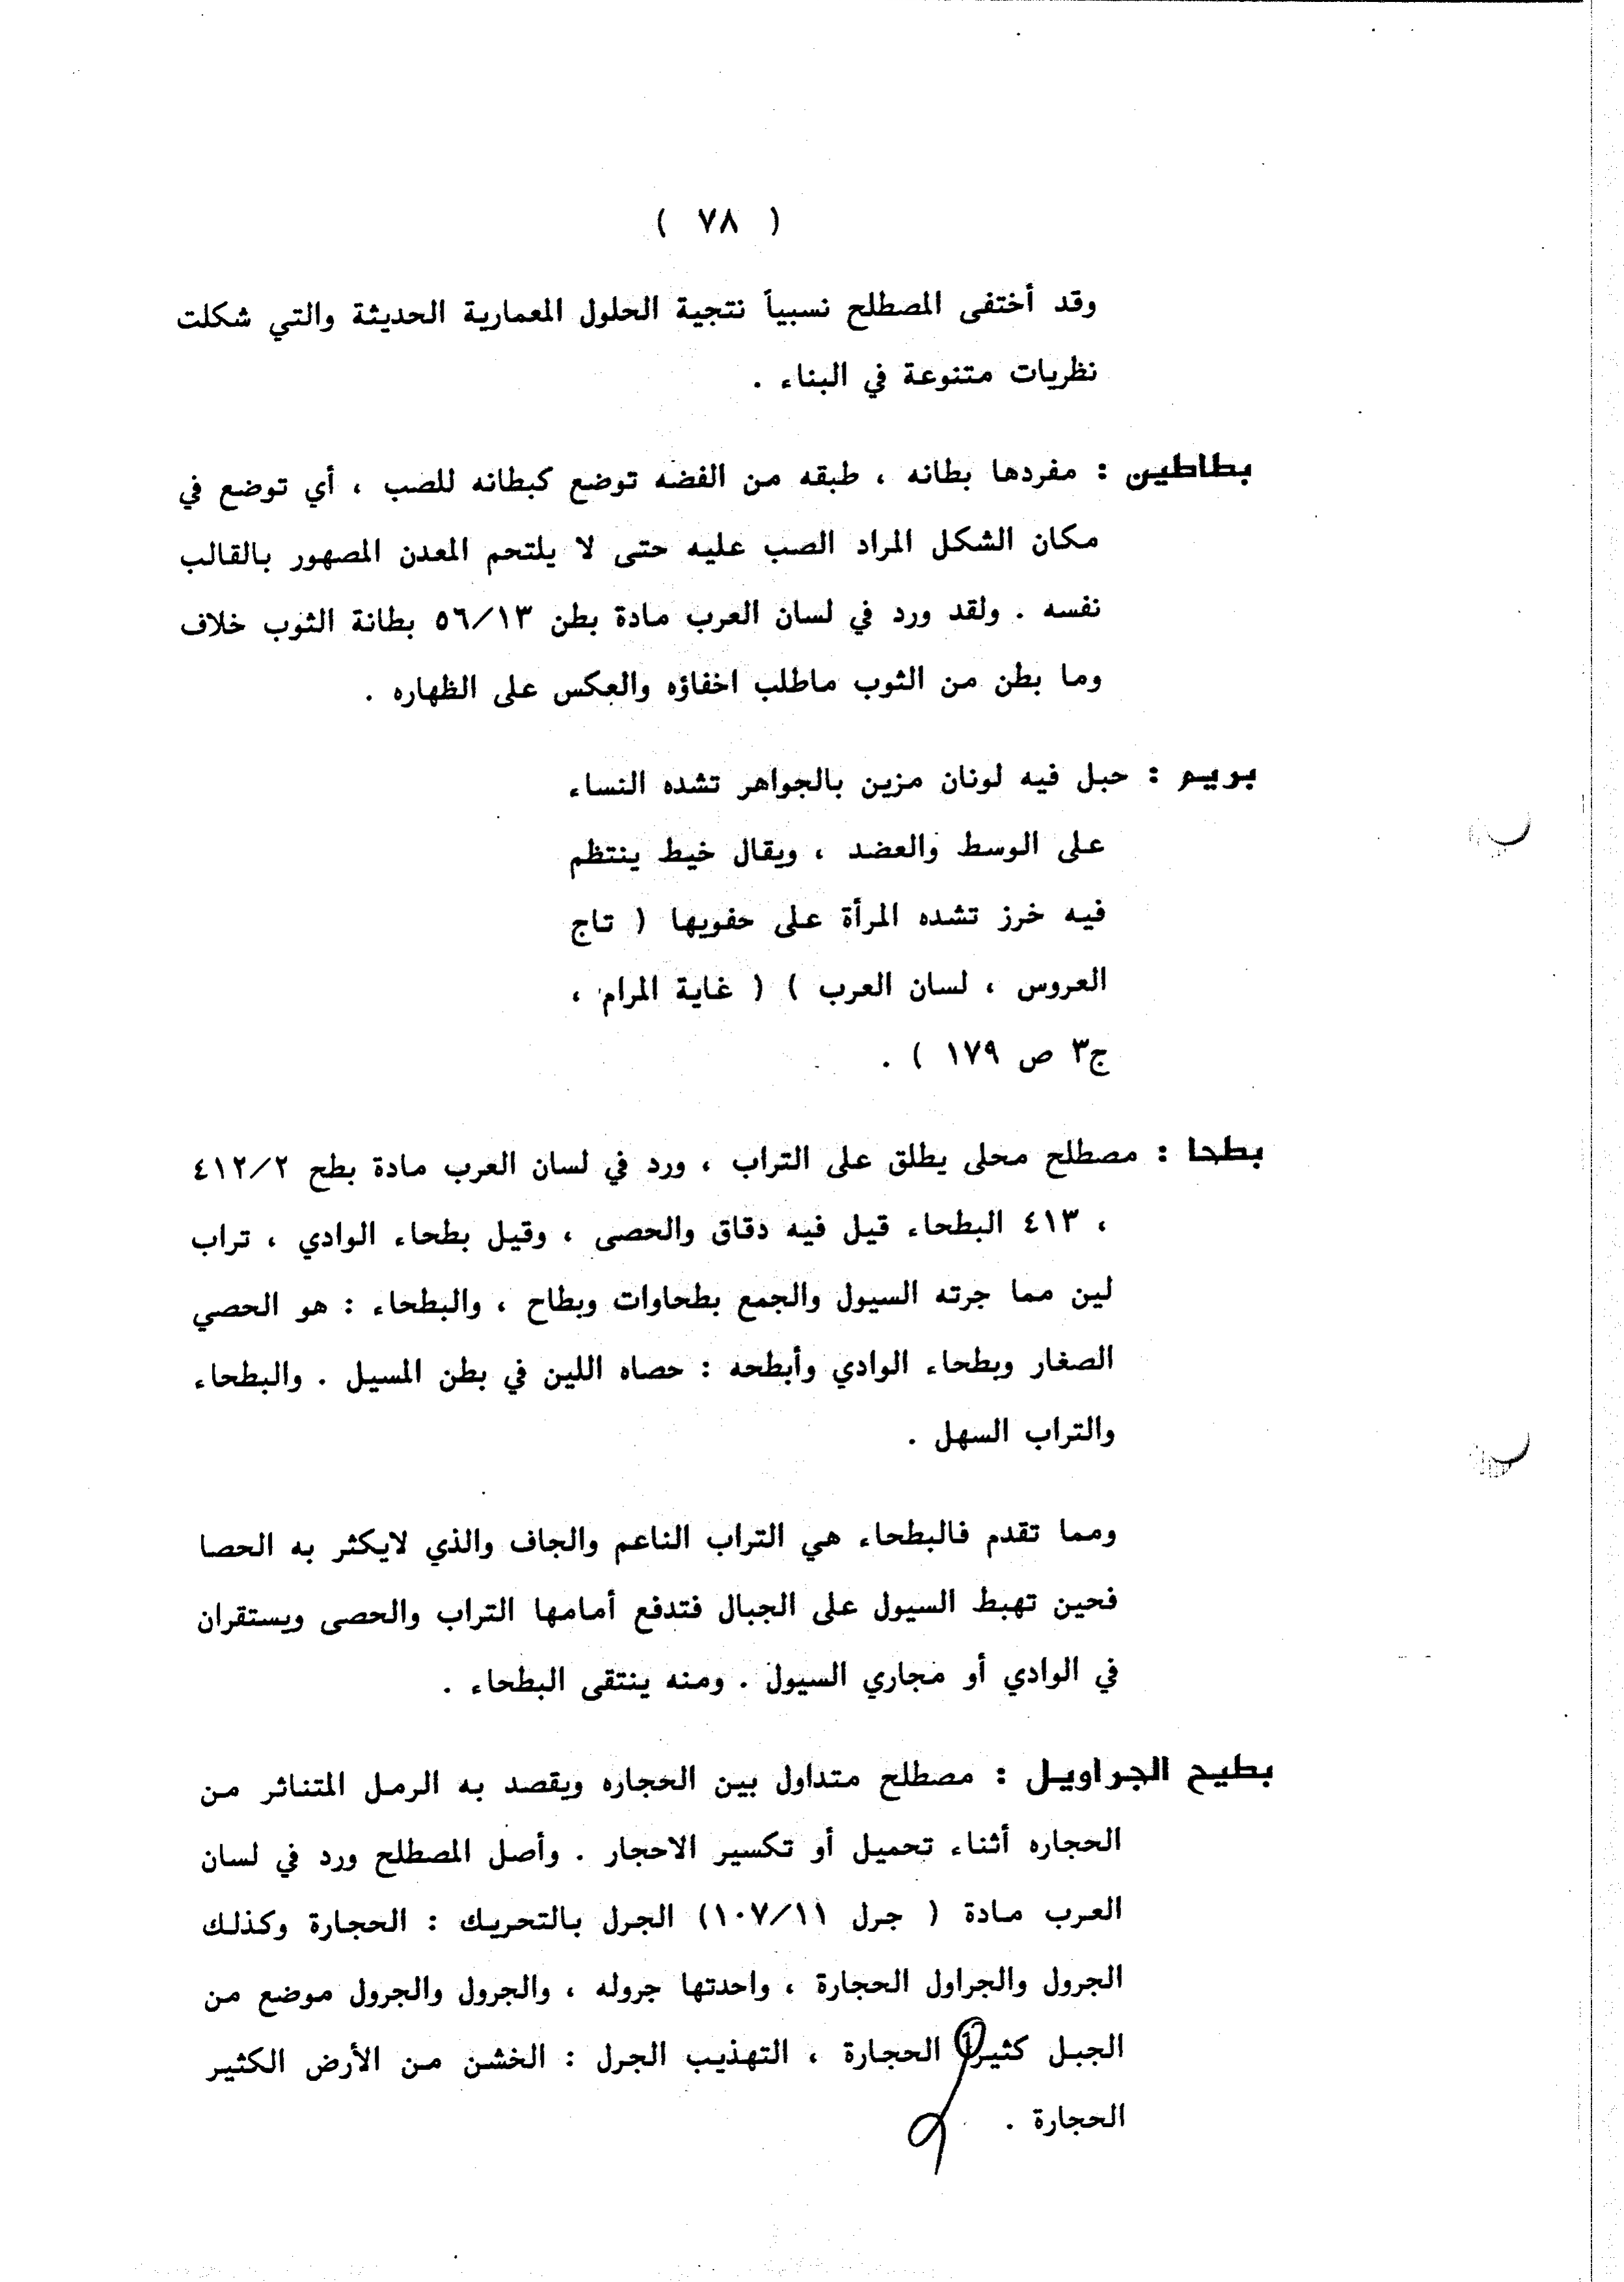 ( ٧٨ )
وقد أختفى المصطلح نسبياً نتجية الحلول المعمارية الحديثة والتي شكلت
نظريات متنوعة في البناء .
بطاطين : مفردها بطانه ، طبقه من الفضه توضع كبطانه للصب ، أي توضع في
مكان الشكل المراد الصب عليه حتى لا يلتحم المعدن المصهور بالقالب
نفسه . ولقد ورد في لسان العرب مادة بطن ٥٦/١٣ بطانة الثوب خلاف
وما بطن من الثوب ماطلب اخفاؤه والعكس على الظهاره .
بريم : حبل فيه لونان مزين بالجواهر تشده النساء
على الوسط والعضد ، ويقال خيط ينتظم
فيه خرز تشده المرأة على حفويها ( تاج
العروس ، لسان العرب ) ( غاية المرام ،
ج٣ ص ١٧٩ ) .
بطحا : مصطلح محلى يطلق على التراب ، ورد في لسان العرب مادة بطح ٤١٢/٢
، ٤١٣ البطحاء قيل فيه دقاق والحصى ، وقيل بطحاء الوادي ، تراب
لين مما جرته السيول والجمع بطحاوات وبطاح ، والبطحاء : هو الحصي
الصغار وبطحاء الوادي وأبطحه : حصاه اللين في بطن المسيل . والبطحاء
والتراب السهل .
ومما تقدم فالبطحاء هي التراب الناعم والجاف والذي لايكثر به الحصا
فحين تهبط السيول على الجبال فتدفع أمامها التراب والحصى ويستقران
في الوادي أو مجاري السيول . ومنه ينتقى البطحاء .
بطيح الجراويل : مصطلح متداول بين الحجاره ويقصد به الرمل المتناثر من
الحجاره أثناء تحميل أو تكسير الاحجار . وأصل المصطلح ورد في لسان
العرب مادة ( جرل ١٠٧/١١) الجرل بالتحريك : الحجارة وكذلك
الجرول والجراول الحجارة ، واحدتها جروله ، والجرول والجرول موضع من
الجبل كثيرا الحجارة ، التهذيب الجرل : الخشن من الأرض الكثير
الحجارة .